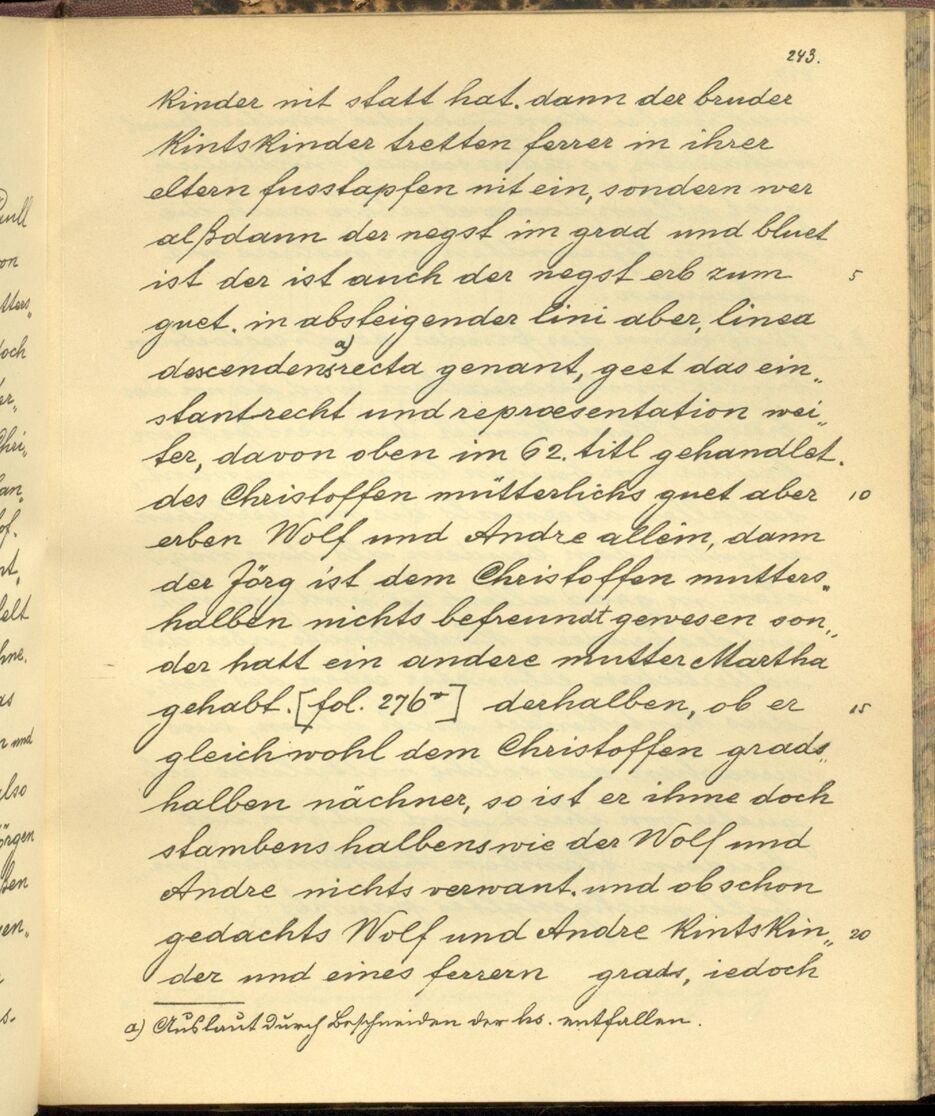 243.
kinder nit statt hat. dann der bruder
kintskinder tretten ferrer in ihrer
eltern fusstapfen nit ein, sondern wer
alßdann der negst im grad und bluet
ist der ist auch der negst erb zum 5
guet. in absteigender lini aber, linea
descendens a) recta genant, geet das ein„
stantrecht und repræsentation wei„
ter, davon oben im 62. titl gehandlet.
des Christoffen mütterlichs guet aber 10
erben Wolf und Andre allein, dann
der Jörg ist dem Christoffen mutters„
halben nichts befreundt gewesen son„
der hatt ein andere mutter Martha
gehabt. [fol. 276r] derhalben, ob er 15
gleichwohl dem Christoffen grads„
halben nächner, so ist er ihme doch
stambens halbens wie der Wolf und
Andre nichts verwant. und obschon
gedachts Wolf und Andre kintskin„ 20
der und eines ferrern grads, iedoch
a) Auslaut durch Beschneiden der hs. entfallen.